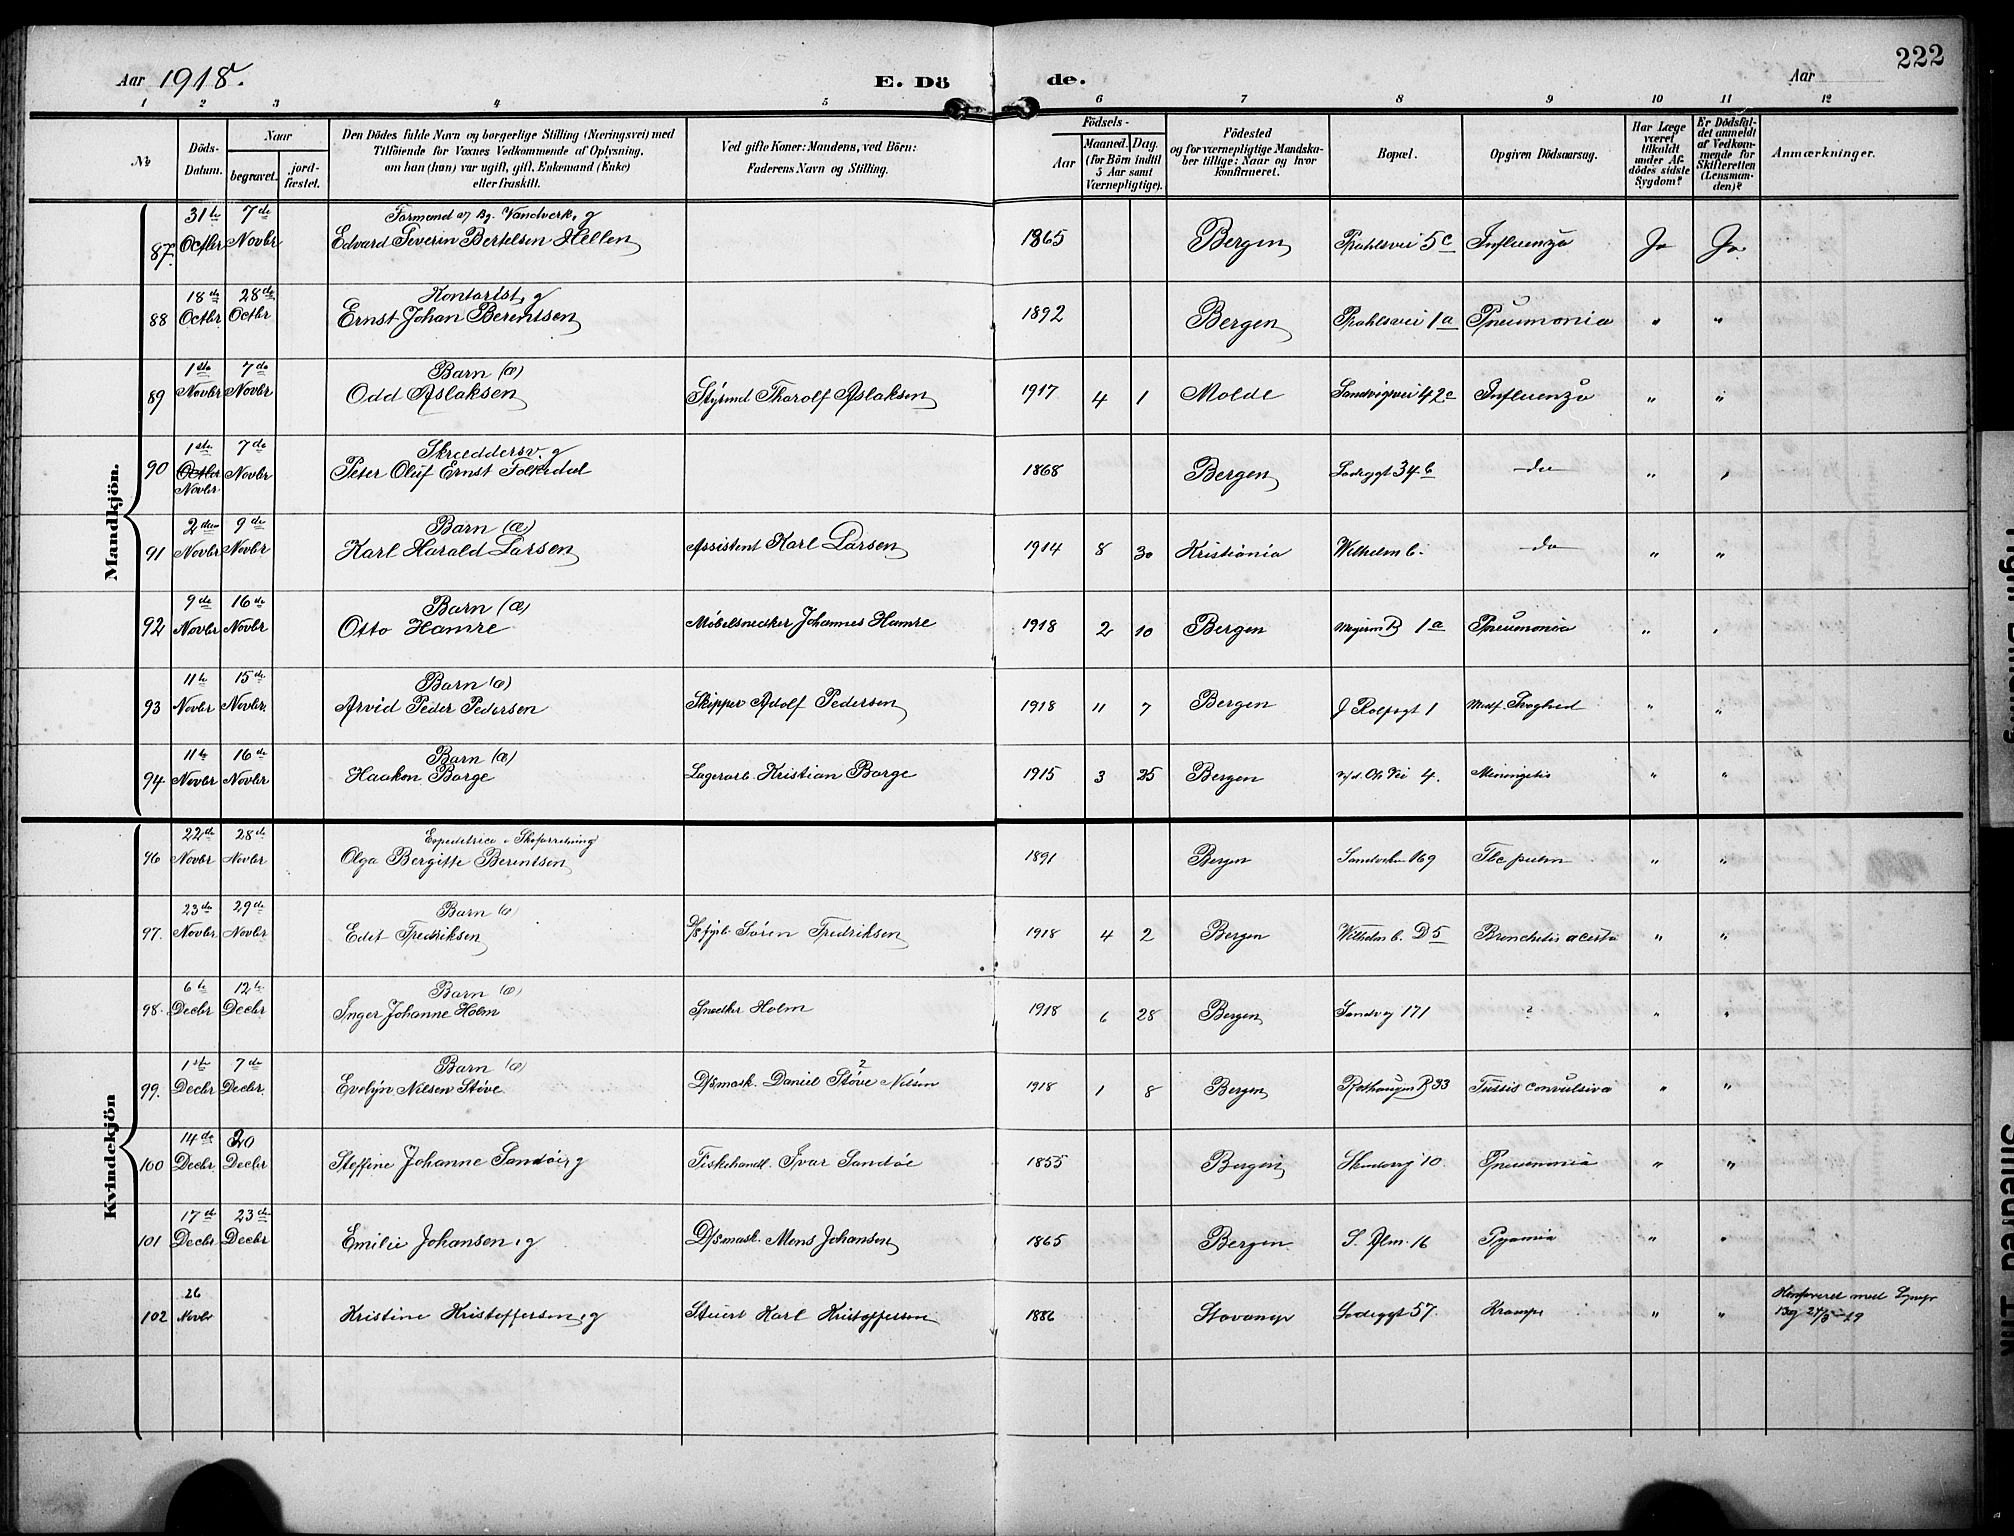 222
Aar 1918. E. Dö de. Aar
1 2 3 4 5 6 7 8 9 10 11 12
№ Döds-Datum. Naar begravet. jord-fæstet. Den Dödes fulde Navn og borgerlige Stilling (Næringsvei) med Tilföiende for Voxnes Vedkommende af Oplysning, om han (hun) var ugift, gift, Enkemand (Enke) eller fraskilt. Ved gifte Koner: Mandens, ved Börn: Faderens Navn og Stilling. Födsels- Aar Maaned. Dag. (for Börn indtil 5 Aar samt Værnepligtige). Födested og for værnepligtige Mandskaber tillige: Naar og hvor konfirmeret. Bopæl. Opgiven Dödsaarsag. Har Læge været tilkaldt under Afdödes sidste Sygdom? Er Dödsfaldet anmeldt af Vedkommende for Skifteretten (Lensmanden)? Anmærkninger.
Mandkjön.
31te 7de Formand Bg. Vandverk, g
87. Octbr Novbr Edvard Severin Bertelsen Hellen 1865 Bergen 5c Influenza Ja Ja
18de 28de Kontorist, g
88 Octbr Octbr Ernst Johan Berentsen 1892 Bergen 1a Pneumonia " "
1ste 7de Barn (æ)
89 Novbr Novbr Odd Aslaksen Styrmd Thorolf Aslaksen 1917 4 1 Molde Sandvigsvei 42c Influenza " "
1ste 7de Skræddersv. g
90 Octbr Novbr Peter Oluf Ernst Folkedal 1868 Bergen 34b do " "
Novbr
2den 9de Barn (æ)
91 Novbr Novbr Karl Harald Larsen Assistent Karl Larsen 1914 8 30 Kristiania Wilhelm b. do " "
9de 16de Barn (æ)
92 Novbr Novbr Otto Hamre Møbelsnedker Johannes Hamre 1918 2 10 Bergen 1a Pneumonia " "
11te 15de Barn (æ)
93 Novbr Novbr. Arvid Peder Pedersen Skipper Adolf Pedersen 1918 11 7 Bergen 1 Medf. Svaghed " "
11te 16de Barn (æ)
94 Novbr Novbr Haakon Borge Lagerarb. Kristian Borge 1915 3 25 Bergen 4. Meningitis " "
Kvindekjön
22de 28de Expeditrice i Skoforretning
96 Novbr Novbr Olga Bergitte Berentsen 1891 Bergen 169 Tbc pulm " "
23de 29de Barn (æ)
97. Novbr Novbr Edit Fredriksen D/s fyrb. Sören Fredriksen 1918 4 2 Bergen Wilhelm b. D5 " "
6te 12te Barn (æ)
98. Decbr Decbr Inger Johanne Holm Snedker Holm 1918 6 28 Bergen Sandvg 171 ? " "
1ste 7de Barn (æ)
99. Decbr Decbr. Evelyn Nilsen Støve D/smask. Daniel Støve Nilsen 1918 1 8 Bergen Rothaugen B33 Tussis convulsiva " "
14de 20
100 Decbr Decbr Steffine Johanne Sandöe, g Fiskehandl. Ivar Sandöe 1855 Bergen 10. Pneumonia " "
17de 23de
101 Decbr Decbr Emilie Johansen, g D/smask. Mons Johansen 1865 Bergen S. Alm. 16 Pyæmia " "
26
102 Novbr Kristine Kristoffersen, g Stuert Karl Kristoffersen 1886 Stavanger 57. Krampe " " Konfereret med